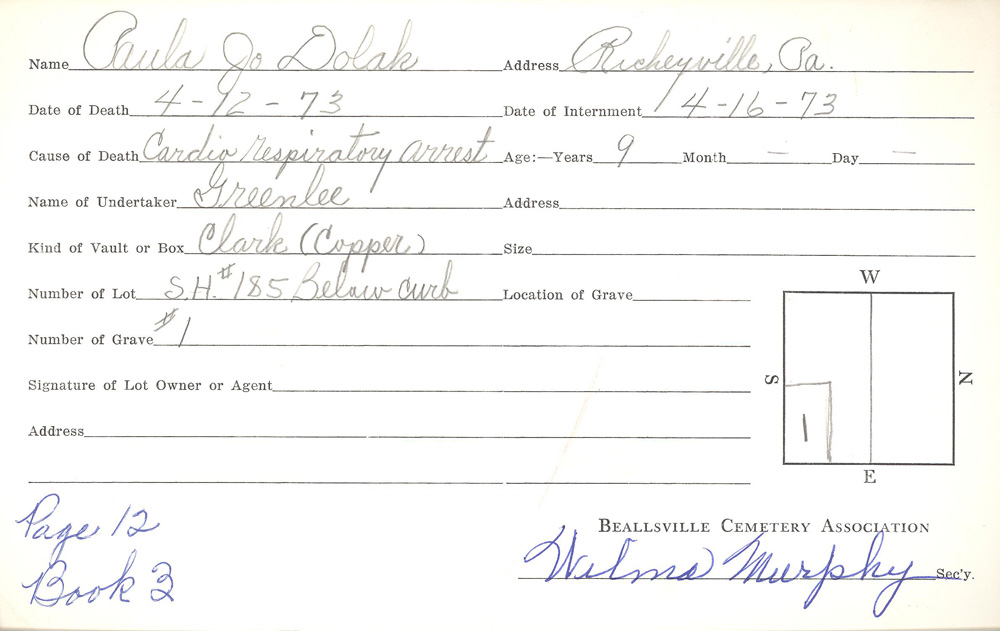 Name Paula Jo Dolak Address Richeyville, Pa.
Date of Death 4-12-73 Date of Internment 4-16-73
Cause of Death Cardio respiratory arrest Age:—Years 9 Month — Day —
Name of Undertaker Greenlee Address
Kind of Vault or Box Clark (Copper) Size
Number of Lot S.H. #185 Below curb Location of Grave
Number of Grave #1
Signature of Lot Owner or Agent
Address
W
S N
1
E
Page 12
Book 3
Beallsville Cemetery Association
Wilma Murphy Sec'y.